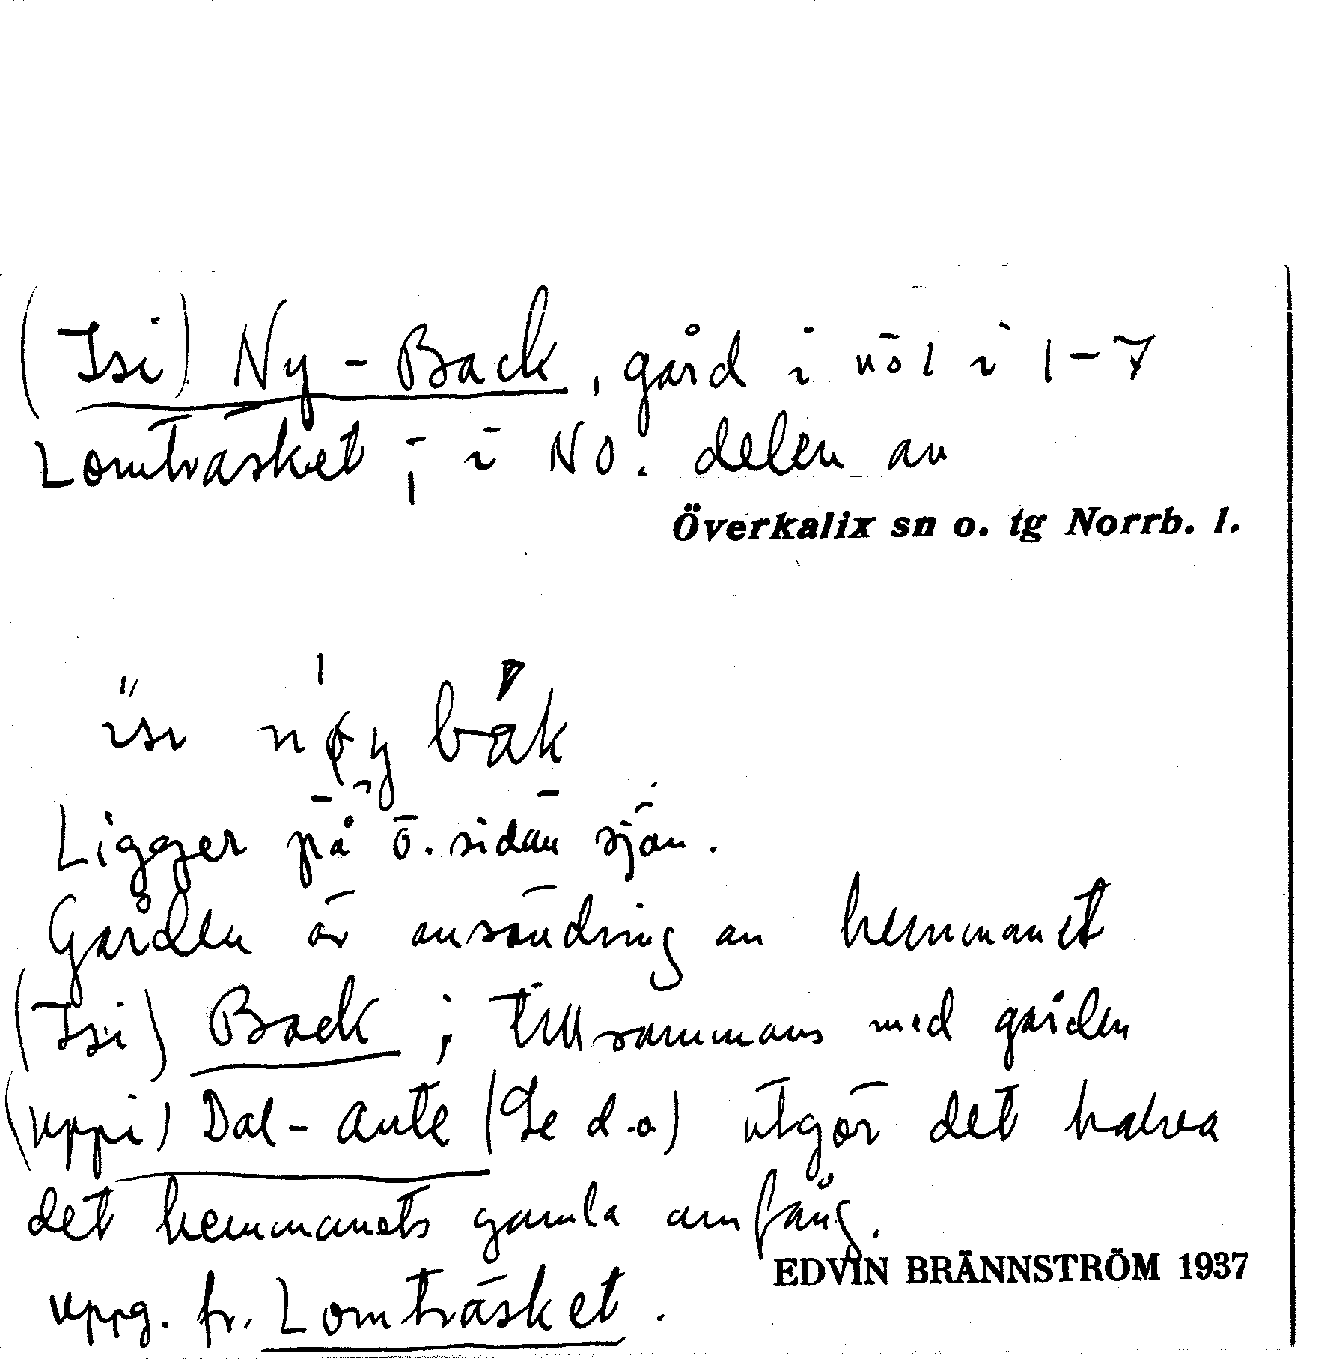 (Isi) Ny-Back, gård i nöl i 1-7
Lomträsket; i NO. delen av
Överkalix sn o. tg Norrb. l.
isi bak
Ligger på ö. sidan sjön.
Gården är avsöndring av hemmanet
(Isi) Back; tillsammans med gården
(uppi) Dal-Ante (Se d.o) utgör det halva
det hemmanets gamla omfång.
EDVIN BRÄNNSTRÖM 1937
uppg. fr. Lomträsket.